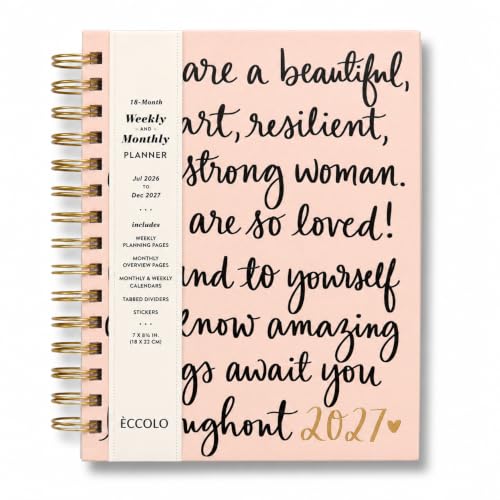 18-Month
Weekly
AND
Monthly
PLANNER
Jul 2026
TO
Dec 2027
includes
WEEKLY
PLANNING PAGES
MONTHLY
OVERVIEW PAGES
MONTHLY & WEEKLY
CALENDARS
TABBED DIVIDERS
STICKERS
7 X 8⅝ IN.
(18 X 22 CM)
ÈCCOLO
are a beautiful,
art, resilient,
strong woman.
are so loved!
nd to yourself
now amazing
gs await you
ughout 2027